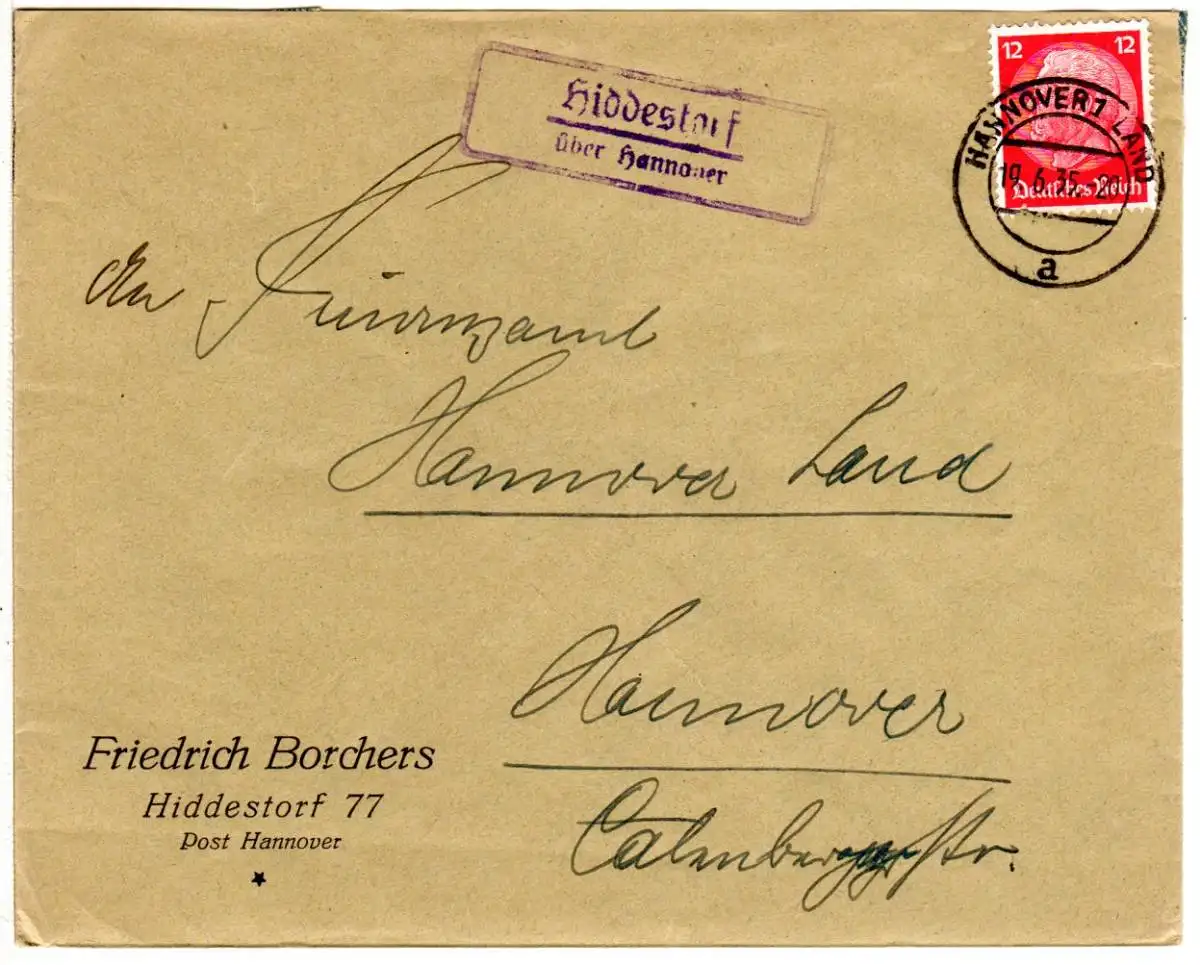 Hiddestorf
über Hannover
12 12
Deutsches Reich
HANNOVER 1 LAND
19.6.35.-20
a
An Finanzamt
Hannover Land
Hannover
Calenbergerstr.
Friedrich Borchers
Hiddestorf 77
Post Hannover